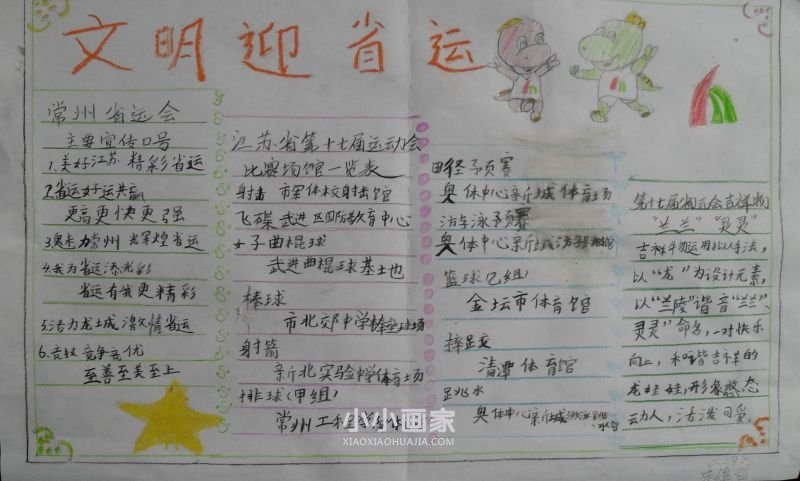 文明迎省运
常州省运会
主要宣传口号
1.美好江苏 精彩省运
2.省运好运共赢
更高更快更强
3.奥走力常州 光辉煌省运
4.我为省运添光彩
省运有我更精彩
5.活力龙城 激情省运
6.竞技竞争竞优
至善至美至上
江苏省第十七届运动会
比赛场馆一览表
射击 市军体校射击馆
飞碟 武进区国防教育中心
女子曲棍球
武进曲棍球基地
棒球
市北郊中学棒垒球场
射箭
新北实验中学体育场
排球(甲组)
常州工
田径予预赛
奥体中心新城体育场
游泳予赛
奥体中心新城游泳
篮球(乙组)
金坛市体育馆
摔跤
清潭体育馆
跳水
奥体中心新城游泳跳水馆
第十七届省运会吉祥物
“兰兰”“灵灵”
吉祥物运用拟人手法,
以“龙”为设计元素,
以“兰陵”谐音“兰兰、
灵灵”命名,一对快乐
向上,和谐吉祥的
龙娃娃,形象憨态
动人,活泼可爱。
小小画家
XIAOXIAOHUAJIA.COM